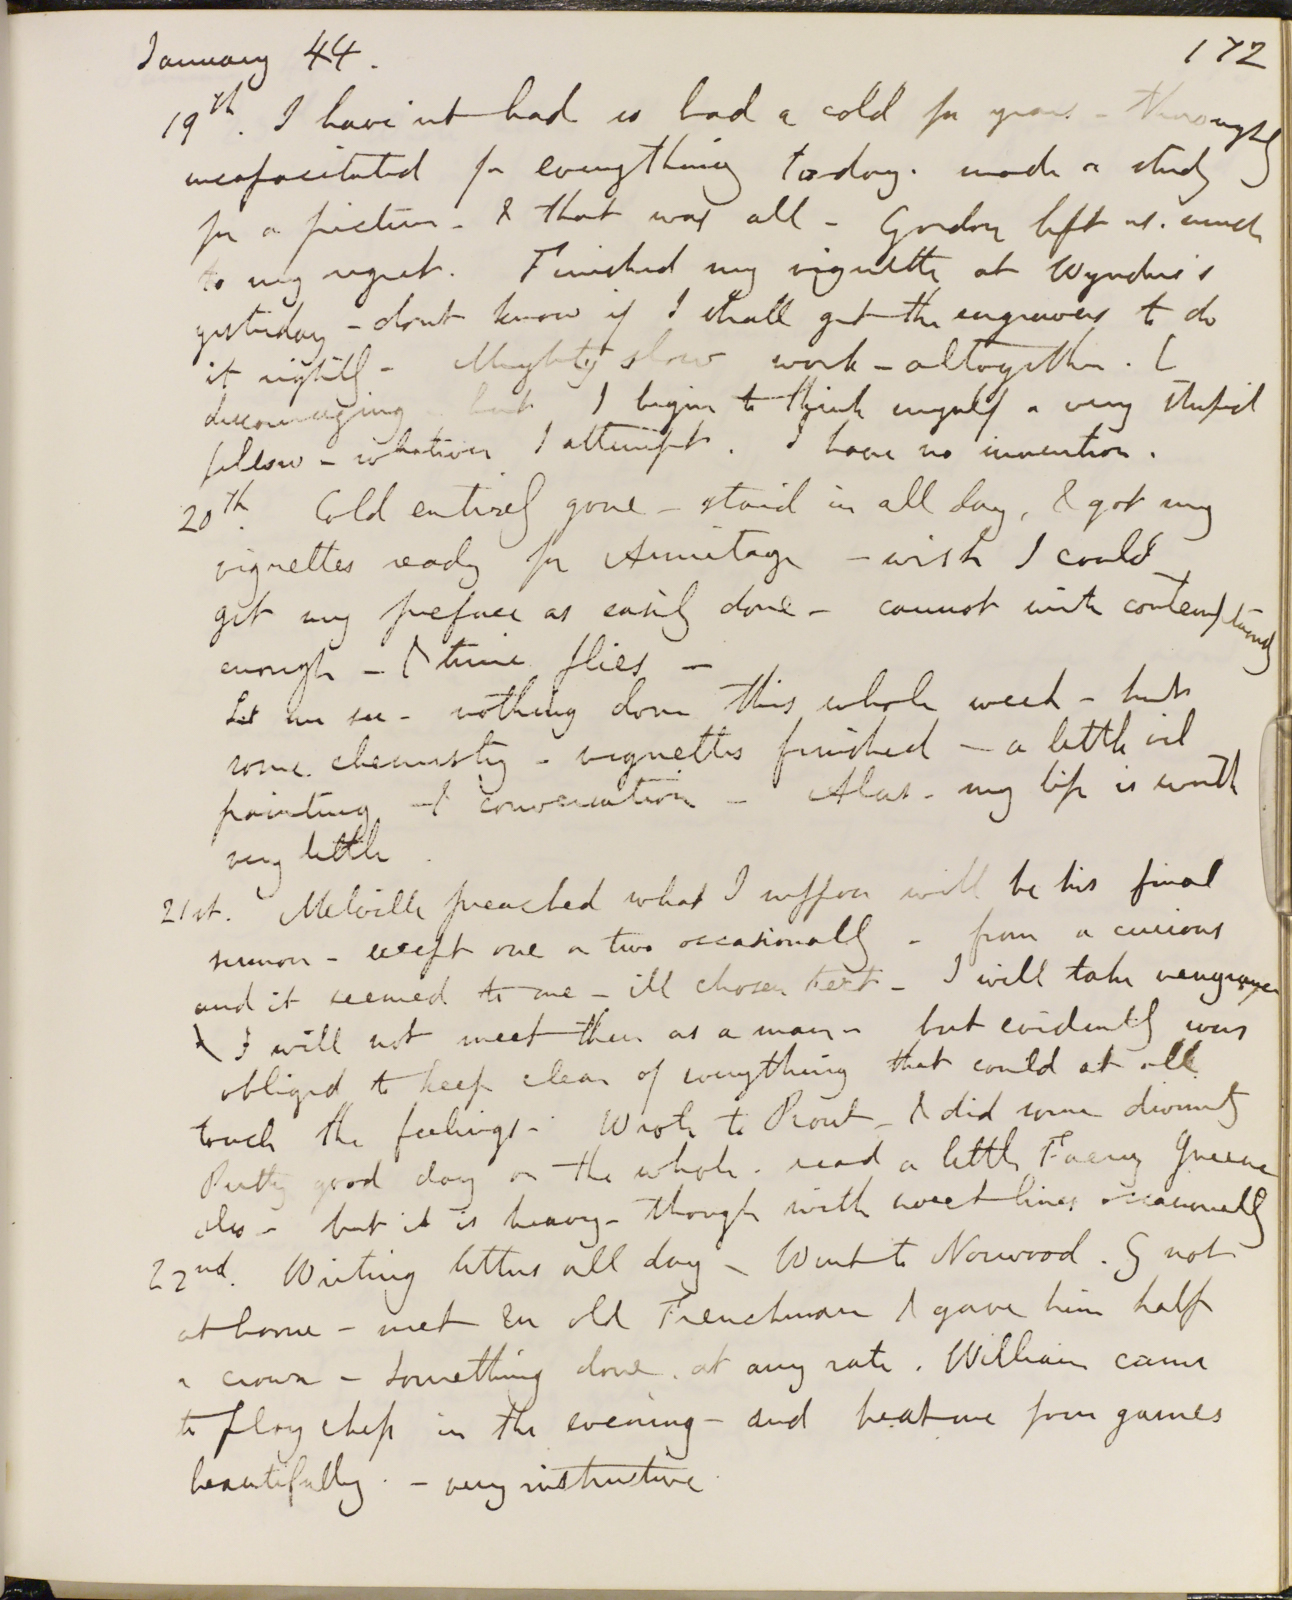 January 44.
172
19th. I have'nt had so bad a cold for years - thoroughly
incapacitated for everything today. made a study
for a picture - & that was all - Gordon left us. much
to my regret. Finished my vignette at Wyndus's
yesterday - dont know if I shall get the engravers to do
it rightly - Mighty slow work - altogether. &
discouraging - but I begin to think myself a very stupid
fellow - whatever I attempt. I have no invention.
20th. Cold entirely gone - staid in all day, & got my
vignettes ready for Armitage - wish I could
get my preface as easily done - cannot write contemptuously
enough - & time flies -
Let me see - nothing done this whole week - but
some chemistry - vignettes finished - a little oil
painting - & conversation - Alas - my life is worth
very little.
21st. Melville preached what I suppose will be his final
sermon - except one or two occasionally - from a curious
and it seemed to me - ill chosen text - I will take vengeance
& I will not meet thee as a man - but evidently was
obliged to keep clear of everything that could at all
touch the feelings - Wrote to Prout - & did some divinity
Pretty good day on the whole. read a little Faery Queene
also - but it is heavy - though with sweet lines occasionally
22nd. Writing letters all day - Went to Norwood. G not
at home - met an old Frenchman & gave him half
a crown - something done. at any rate. William came
to play chess in the evening - and beat me four games
beautifully. - very instructive.